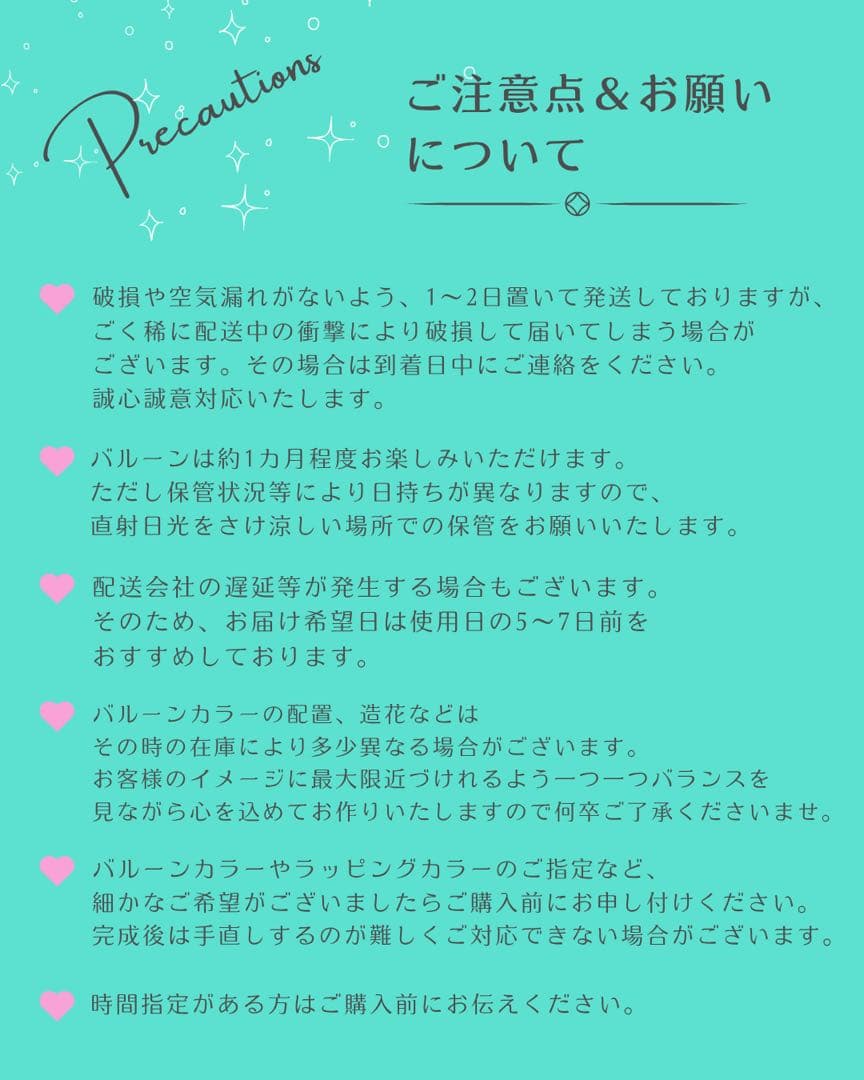 Precautions
ご注意点＆お願い
について
破損や空気漏れがないよう、1〜2日置いて発送しておりますが、
ごく稀に配送中の衝撃により破損して届いてしまう場合が
ございます。その場合は到着日中にご連絡をください。
誠心誠意対応いたします。
バルーンは約1カ月程度お楽しみいただけます。
ただし保管状況等により日持ちが異なりますので、
直射日光をさけ涼しい場所での保管をお願いいたします。
配送会社の遅延等が発生する場合もございます。
そのため、お届け希望日は使用日の5〜7日前を
おすすめしております。
バルーンカラーの配置、造花などは
その時の在庫により多少異なる場合がございます。
お客様のイメージに最大限近づけれるよう一つ一つバランスを
見ながら心を込めてお作りいたしますので何卒ご了承くださいませ。
バルーンカラーやラッピングカラーのご指定など、
細かなご希望がございましたらご購入前にお申し付けください。
完成後は手直しするのが難しくご対応できない場合がございます。
時間指定がある方はご購入前にお伝えください。